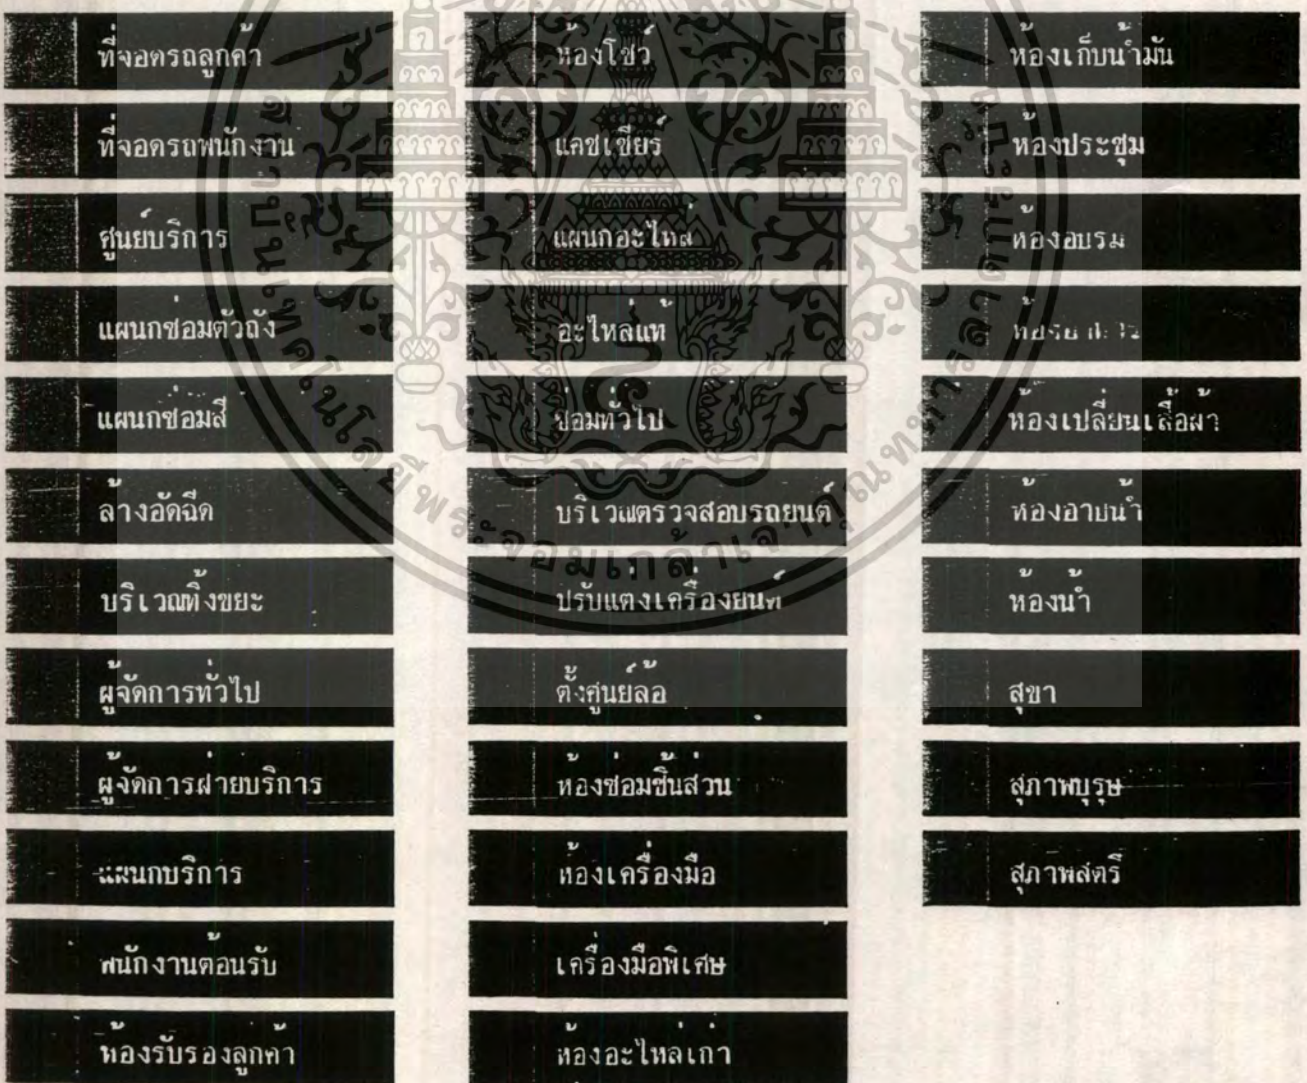 ที่จอดรถลูกค้า
ที่จอดรถพนักงาน
ศูนย์บริการ
แผนกซ่อมตัวถัง
แผนกซ่อมสี
ล้างอัดฉีด
บริเวณทิ้งขยะ
ผู้จัดการทั่วไป
ผู้จัดการฝ่ายบริการ
แผนกบริการ
พนักงานต้อนรับ
ห้องรับรองลูกค้า
ห้องโชว์
แคชเชียร์
แผนกอะไหล่
อะไหล่แท้
ซ่อมทั่วไป
บริเวณตรวจสอบรถยนต์
ปรับแต่งเครื่องยนต์
ตั้งศูนย์ล้อ
ห้องซ่อมชิ้นส่วน
ห้องเครื่องมือ
เครื่องมือพิเศษ
ห้องอะไหล่เก่า
ห้องเก็บน้ำมัน
ห้องประชุม
ห้องอบรม
ห้องเปลี่ยนเสื้อผ้า
ห้องอาบน้ำ
ห้องน้ำ
สุขา
สุภาพบุรุษ
สุภาพสตรี
สถาบันเทคโนโลยีพระจอมเกล้าเจ้าคุณทหารลาดกระบัง